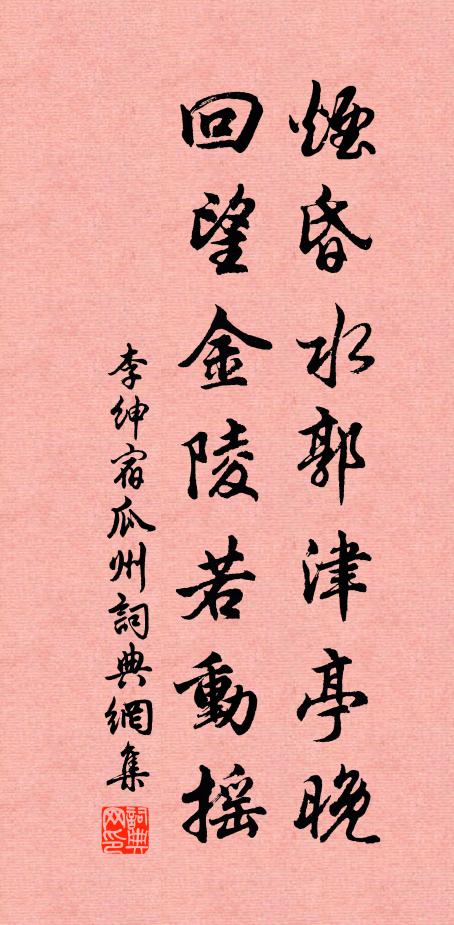 煙昏水郭津亭晚
回望金陵若動搖
李紳宿瓜州詞典網集
詞典网印